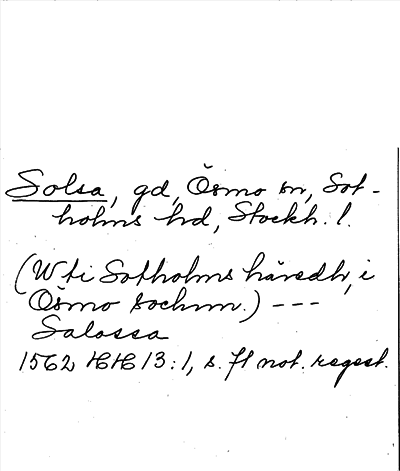 Solsa, gd, Ösmo sn, Sot-
holms hd, Stockh. l.
(W ti Sotholms häredh, i
Ösmo sochnn.) ---
Salossa
1562 HH 13:1, s. 71 not. regest.